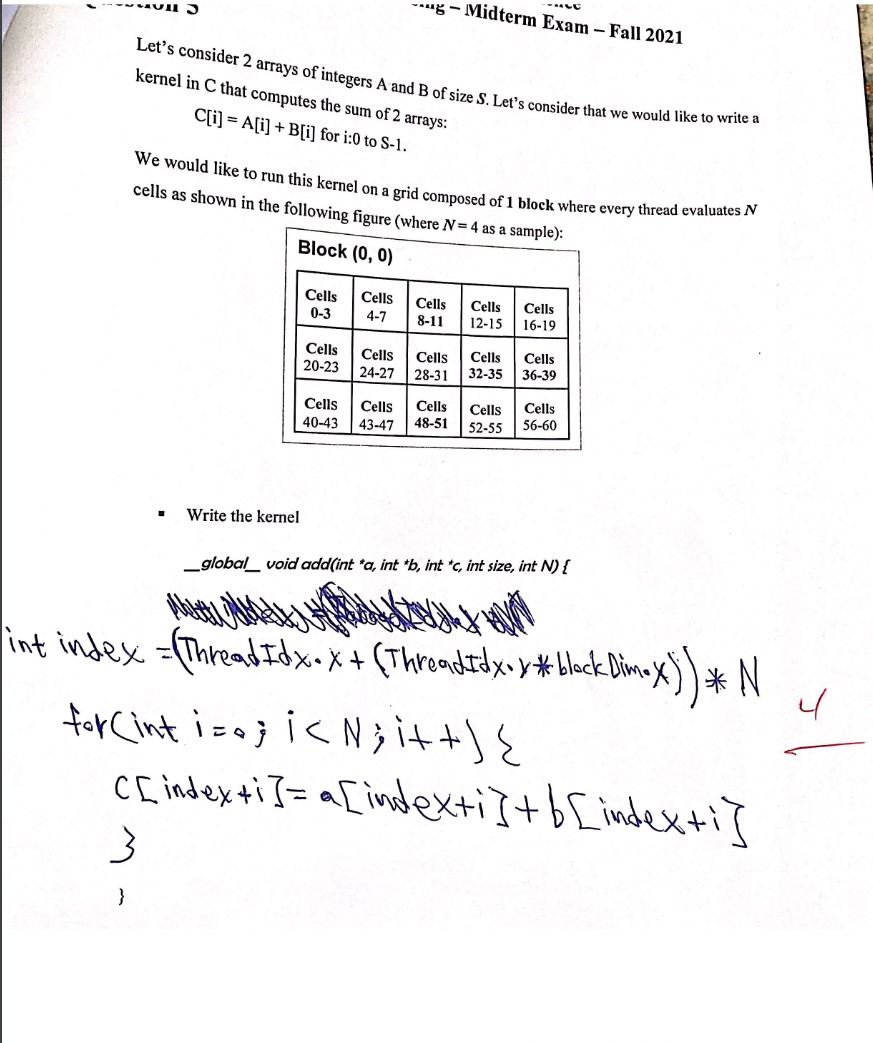 – Midterm Exam – Fall 2021
Let's consider 2 arrays of integers A and B of size S. Let's consider that we would like to write a
kernel in C that computes the sum of 2 arrays:
C[i] = A[i] + B[i] for i:0 to S-1.
We would like to run this kernel on a grid composed of 1 block where every thread evaluates N
cells as shown in the following figure (where N= 4 as a sample):
Block (0, 0)
Cells 0-3 Cells 4-7 Cells 8-11 Cells 12-15 Cells 16-19
Cells 20-23 Cells 24-27 Cells 28-31 Cells 32-35 Cells 36-39
Cells 40-43 Cells 43-47 Cells 48-51 Cells 52-55 Cells 56-60
▪ Write the kernel
__global__ void add(int *a, int *b, int *c, int size, int N) {
int index = (ThreadIdx.x + (ThreadIdx.y * blockDim.x)) * N
for(int i=0; i < N; i++) {
c[index+i] = a[index+i] + b[index+i]
}
}
4